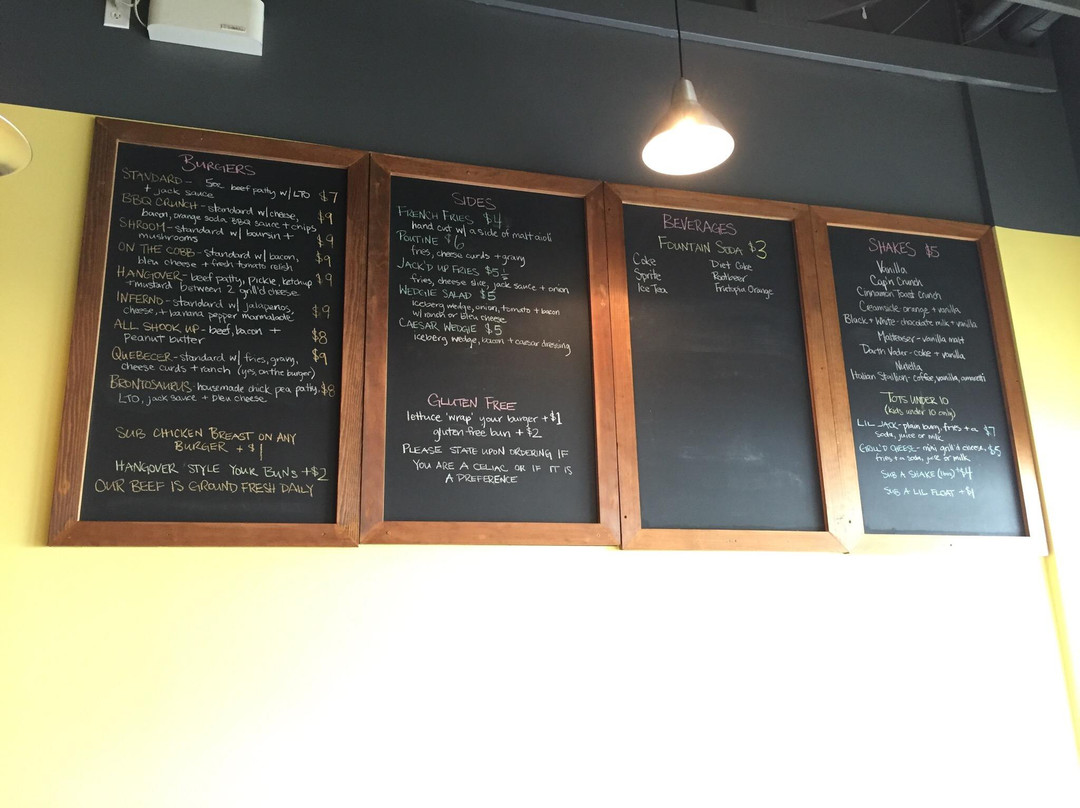 BURGERS
STANDARD - 5oz beef patty w/ LTO $7
+ jack sauce
BBQ CRUNCH - standard w/ cheese,
bacon, orange soda BBQ sauce + chips $9
SHROOM - standard w/ boursin +
mushrooms $9
ON THE COBB - standard w/ bacon,
bleu cheese + fresh tomato relish $9
HANGOVER - beef patty, pickle, ketchup $9
+ mustard between 2 grill'd cheese
INFERNO - standard w/ jalapenos,
cheese, + banana pepper marmalade $9
ALL SHOOK UP - beef, bacon + $8
peanut butter
QUEBECER - standard w/ fries, gravy, $9
cheese curds + ranch (yes on the burger)
BRONTOSAURUS - housemade chick pea patty. $8
LTO, jack sauce + bleu cheese
SUB CHICKEN BREAST ON ANY
BURGER + $1
HANGOVER STYLE YOUR BUNS +$2
OUR BEEF IS GROUND FRESH DAILY
SIDES
FRENCH FRIES $4
hand cut w/ a side of malt aioli
POUTINE $6
fries, cheese curds + gravy
JACK'D UP FRIES $5½
fries, cheese slice, jack sauce + onion
WEDGIE SALAD $5
iceberg wedge, onion, tomato + bacon
w/ ranch or bleu cheese
CAESAR WEDGIE $5
iceberg wedge, bacon + caesar dressing
GLUTEN FREE
lettuce 'wrap' your burger +$1
gluten-free bun + $2
PLEASE STATE UPON ORDERING IF
YOU ARE A CELIAC OR IF IT IS
A PREFERENCE
BEVERAGES
FOUNTAIN SODA $3
Coke Diet Coke
Sprite Rootbeer
Ice Tea Frutopia Orange
SHAKES $5
Vanilla
Cap'n Crunch
Cinnamon Toast Crunch
Creamsicle orange + vanilla
Black + White - chocolate milk + vanilla
Malteaser - vanilla malt
Darth Vader - coke + vanilla
Nutella
Italian Stallion - coffee, vanilla, amaretti
TOTS UNDER 10
(kids under 10 only)
LIL JACK - plain burg, fries + a $7
soda, juice or milk
GRILL'D CHEESE - mini grill'd cheese, $5
fries + a soda, juice or milk
SUB A SHAKE $4
SUB A LIL FLOAT +$1